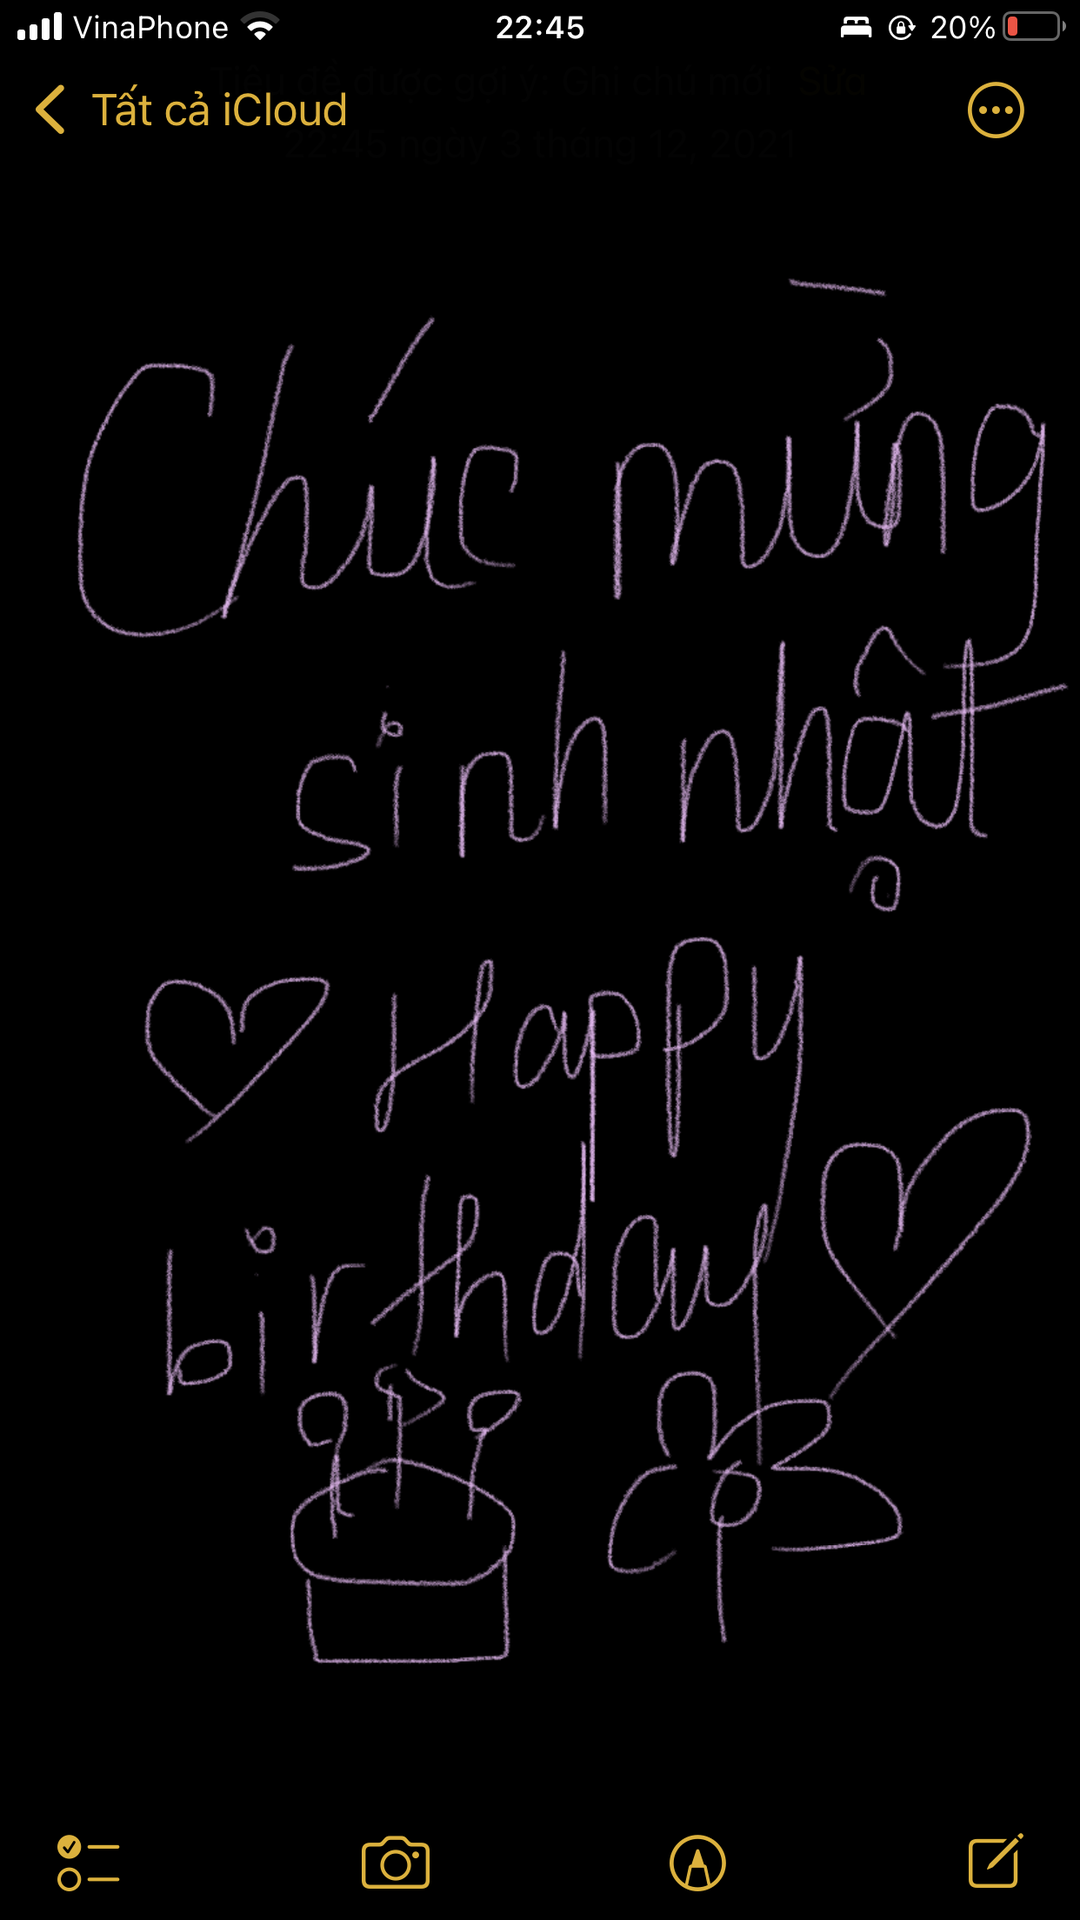 VinaPhone 22:45 20%
Tiêu đề được gợi ý: Ghi chú mới Sửa
Tất cả iCloud
22:45 ngày 3 tháng 12, 2021
Chúc mừng
sinh nhật
Happy
birthday